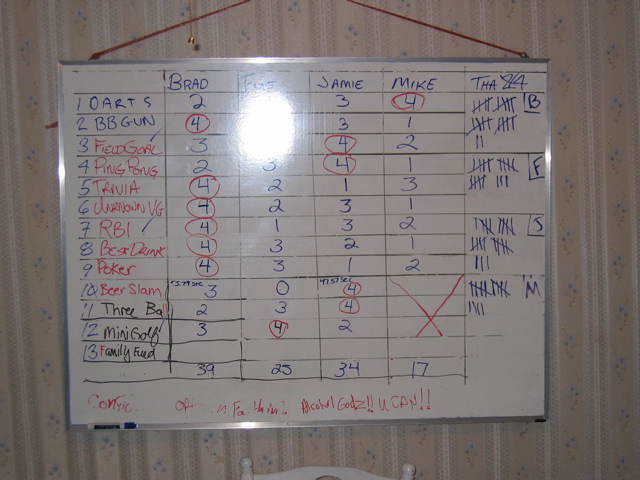 BRAD JAMIE MIKE THA 24
1 DARTS 2 3 4 B
2 BB GUN 4 3 1
3 FIELD GOAL 3 4 2
4 PING PONG 2 3 4 1 F
5 TRIVIA 4 2 1 3
6 UNKNOWN VG 4 2 3 1
7 RBI 4 1 3 2 S
8 Beer Drink 4 3 2 1
9 Poker 4 3 1 2
10 Beer Slam 3 0 47.57 sec 4 M
11 Three Ball 2 3 4
12 Mini Golf 3 4 2
13 Family Feud
39 25 34 17
Alcohol Godz!! U CAN!!